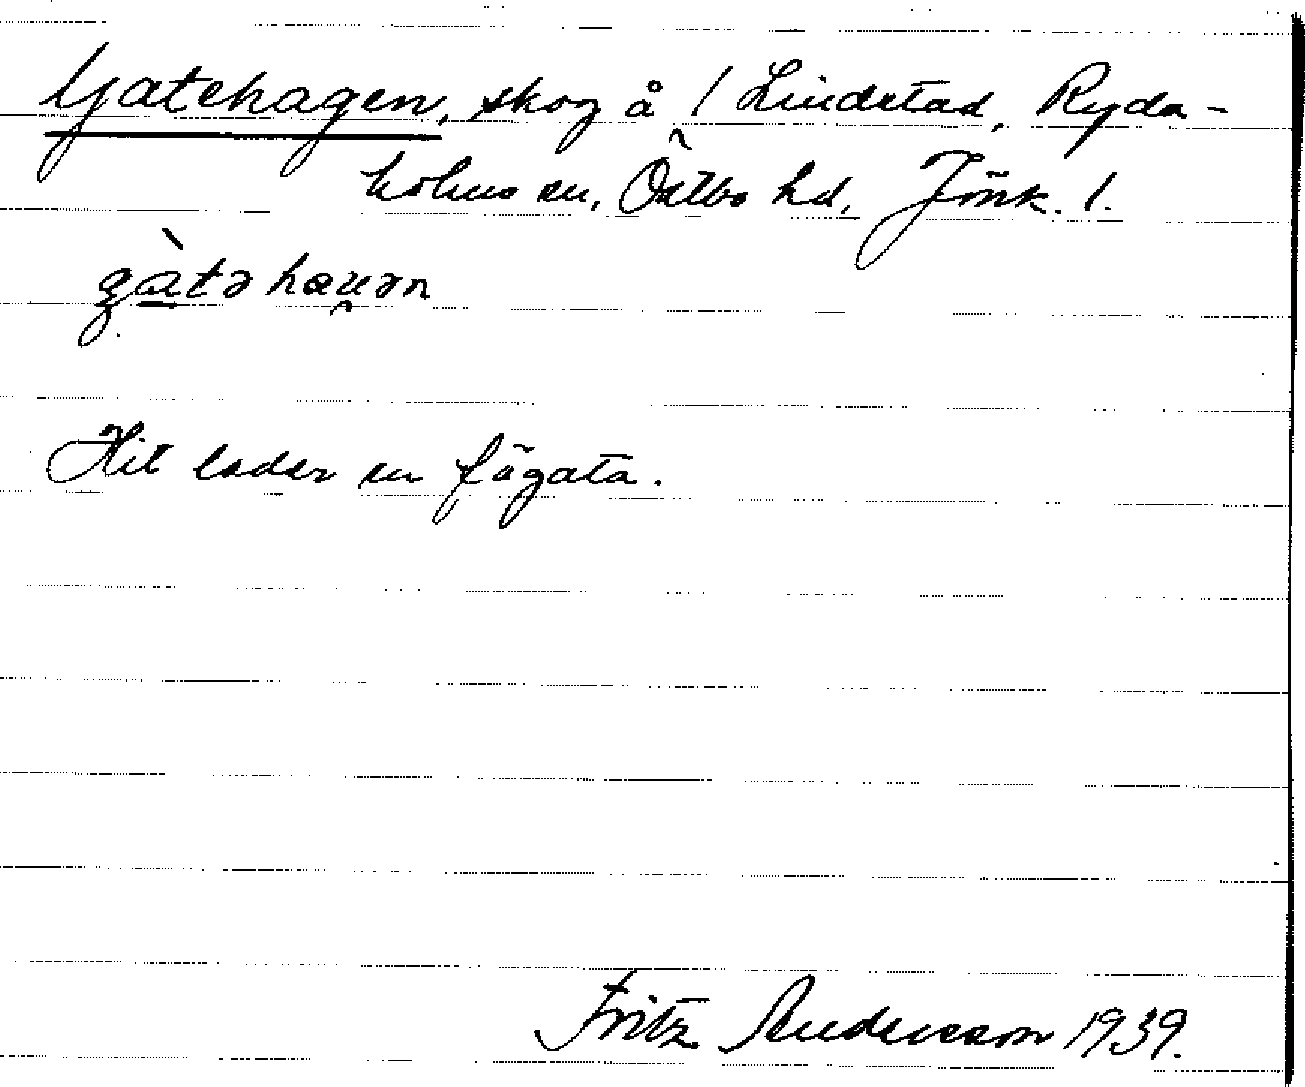 Gatehagen, skog å 1 Lindstad, Ryda-
holms sn, Östbo hd, Jönk. l.
gàtə hau̯ən
Hit leder en fägata.
Fritz Andersson 1939.